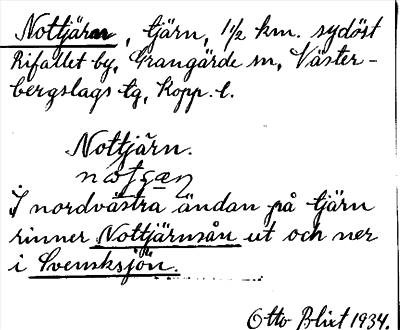 Nottjärn, tjärn, 1 1/2 km. sydöst
Rifallet by, Grangärde sn, Väster-
bergslags tg, Kopp. l.
Nottjärn.
I nordvästra ändan på tjärn
rinner Nottjärnsån ut och ner
i Svensksjön.
Otto Blixt 1934.